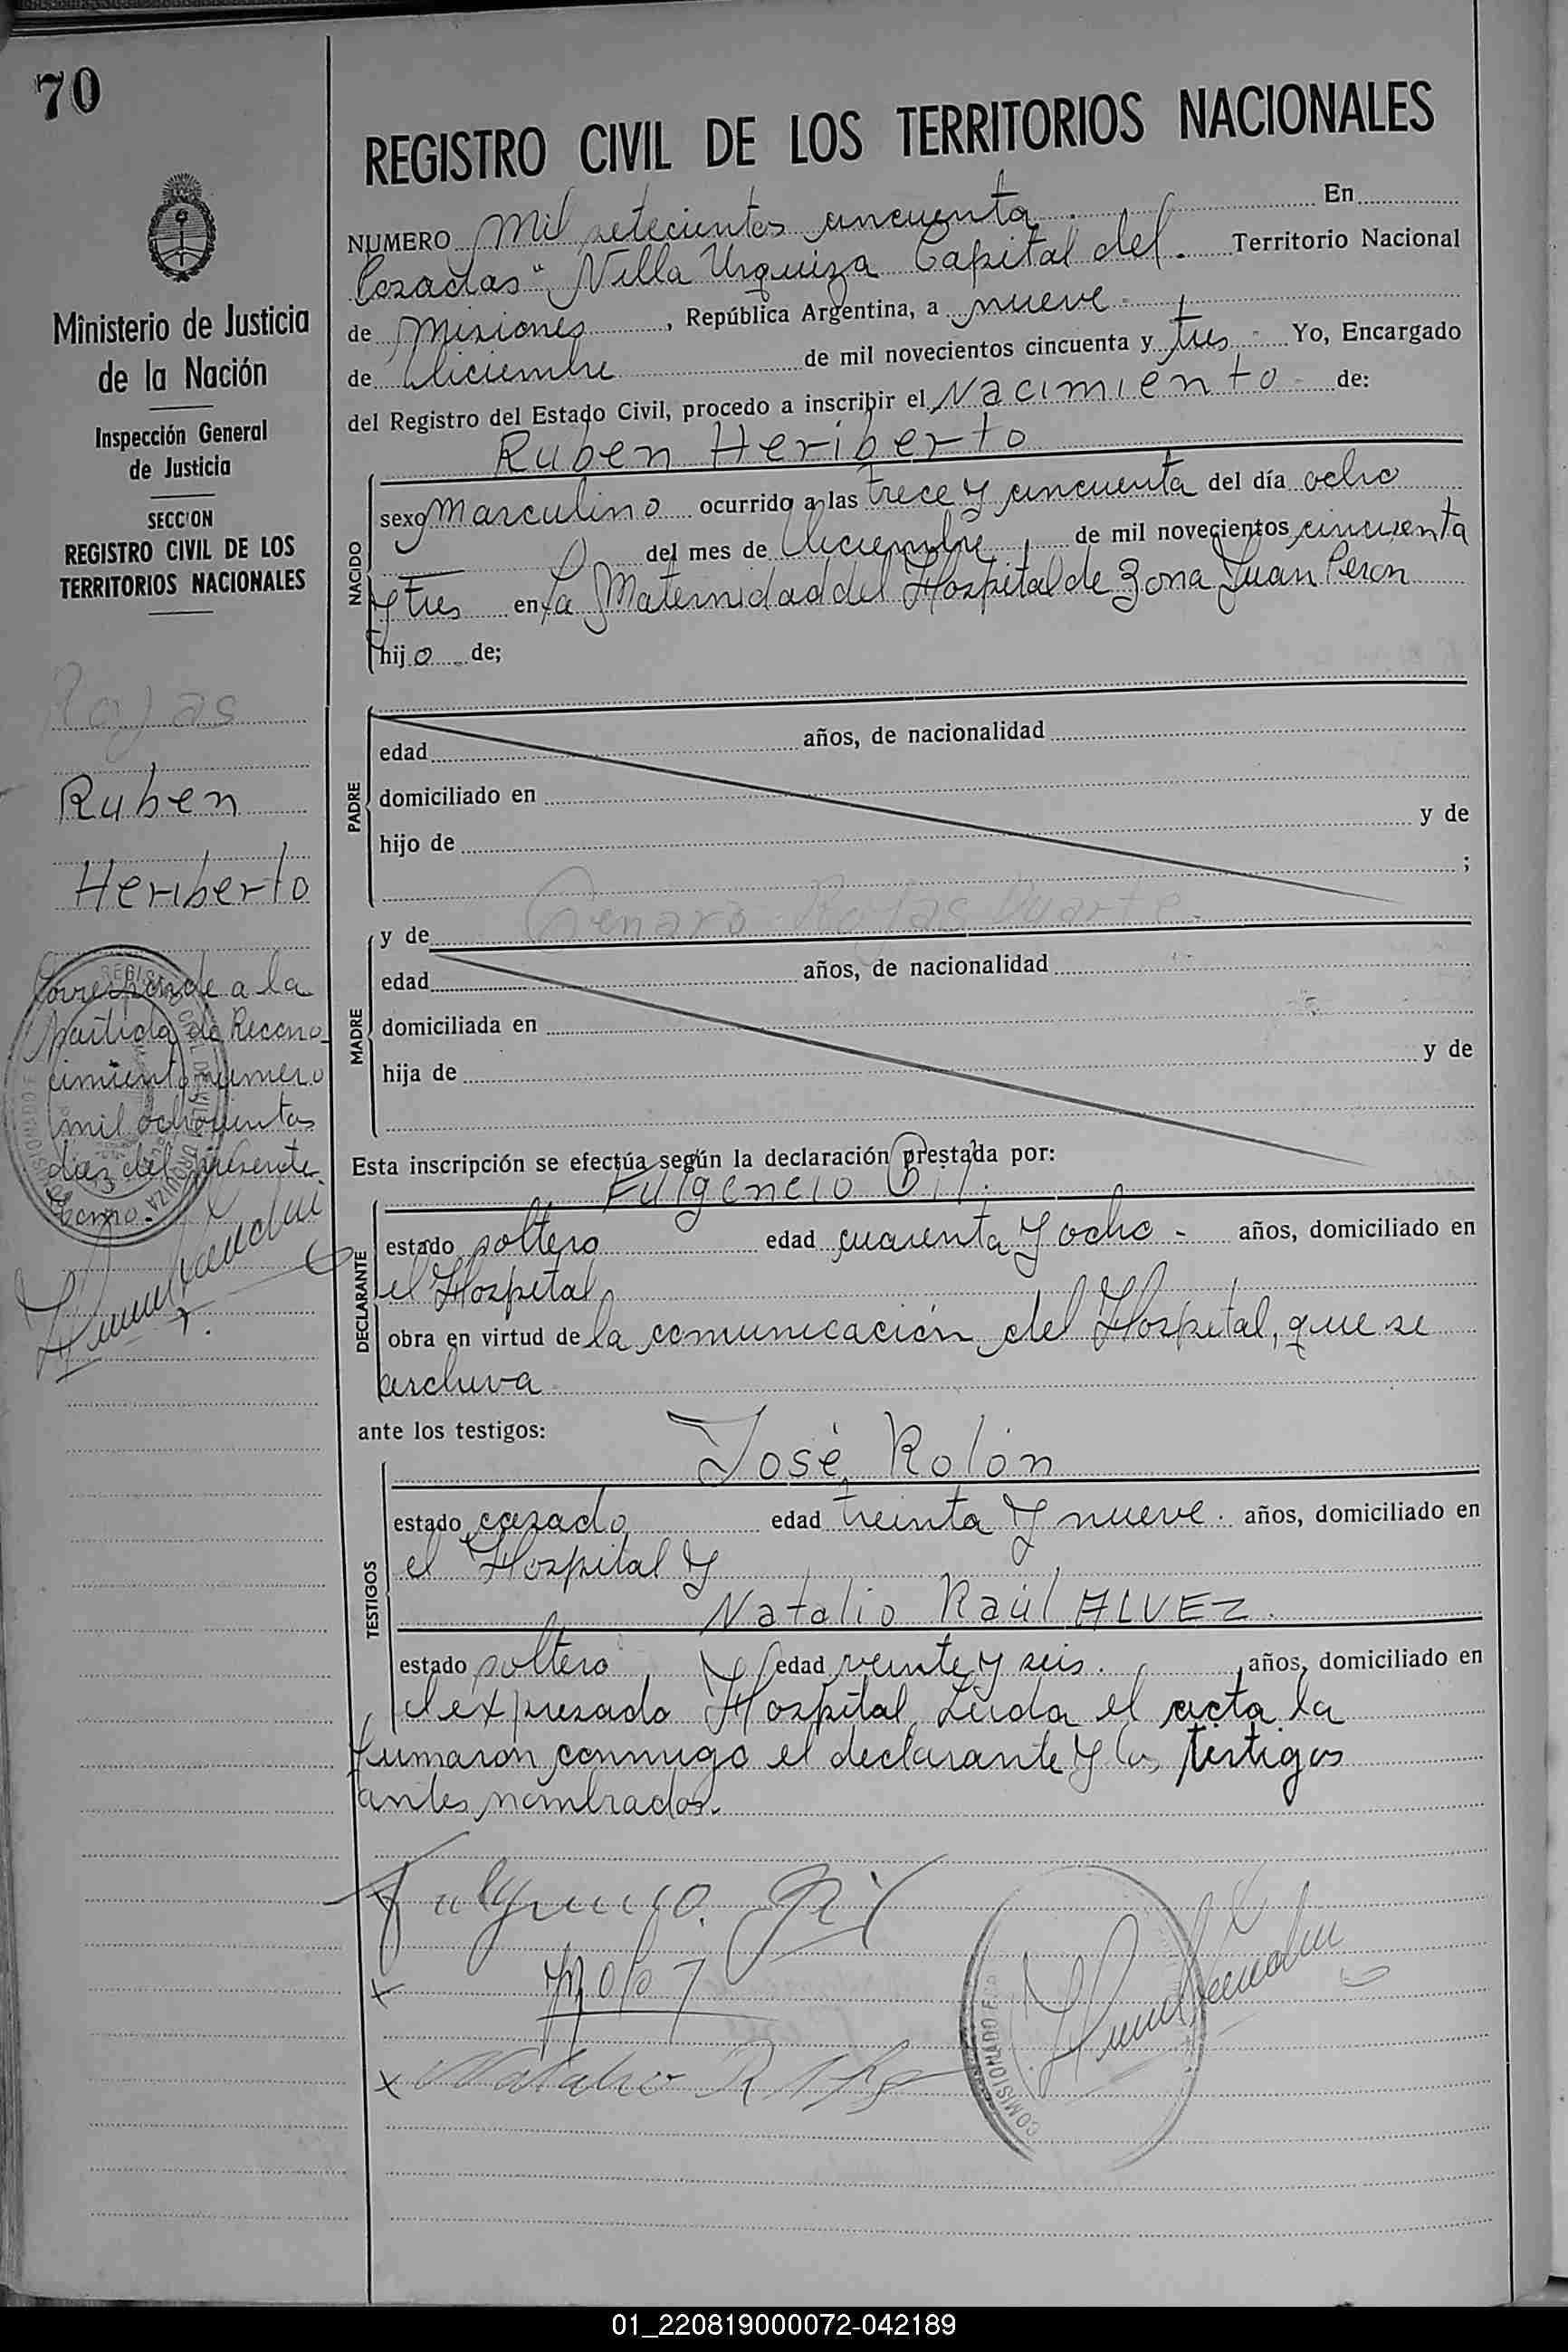 70
Ministerio de Justicia
de la Nación
Inspección General
de Justicia
SECCION
REGISTRO CIVIL DE LOS
TERRITORIOS NACIONALES
Rojas
Ruben
Heriberto
Corresponde a la
partida de Recono-
cimiento numero
mil ochocientos
diez del presente
tomo.-
REGISTRO CIVIL DE LOS TERRITORIOS NACIONALES
NUMERO Mil setecientos cincuenta. En
Posadas" Villa Urquiza Capital del. Territorio Nacional
de Misiones, República Argentina, a nueve
de Diciembre de mil novecientos cincuenta y tres Yo, Encargado
del Registro del Estado Civil, procedo a inscribir el Nacimiento de:
Ruben Heriberto
NACIDO
sexo masculino ocurrido a las trece y cincuenta del día ocho
del mes de Diciembre, de mil novecientos cincuenta
y tres en La Maternidad del Hospital de Zona Juan Peron
hijo de;
PADRE
edad años, de nacionalidad
domiciliado en
hijo de y de
;
y de Genaro Rojas Duarte.
MADRE
edad años, de nacionalidad
domiciliada en
hija de y de
Esta inscripción se efectúa según la declaración prestada por:
Fulgencio Gil.
DECLARANTE
estado soltero edad cuarenta y ocho - años, domiciliado en
el Hospital
obra en virtud de la comunicación del Hospital, que se
archiva
ante los testigos:
José Rolón
TESTIGOS
estado casado edad treinta y nueve. años, domiciliado en
el Hospital y
Natalio Raúl ALVEZ.
estado soltero, y edad veinte y seis. años, domiciliado en
el expresado Hospital Leida el acta la
firmaron conmigo el declarante y los testigos
antes nombrados.
Fulgencio Gil
COMISIONADO
01_220819000072-042189